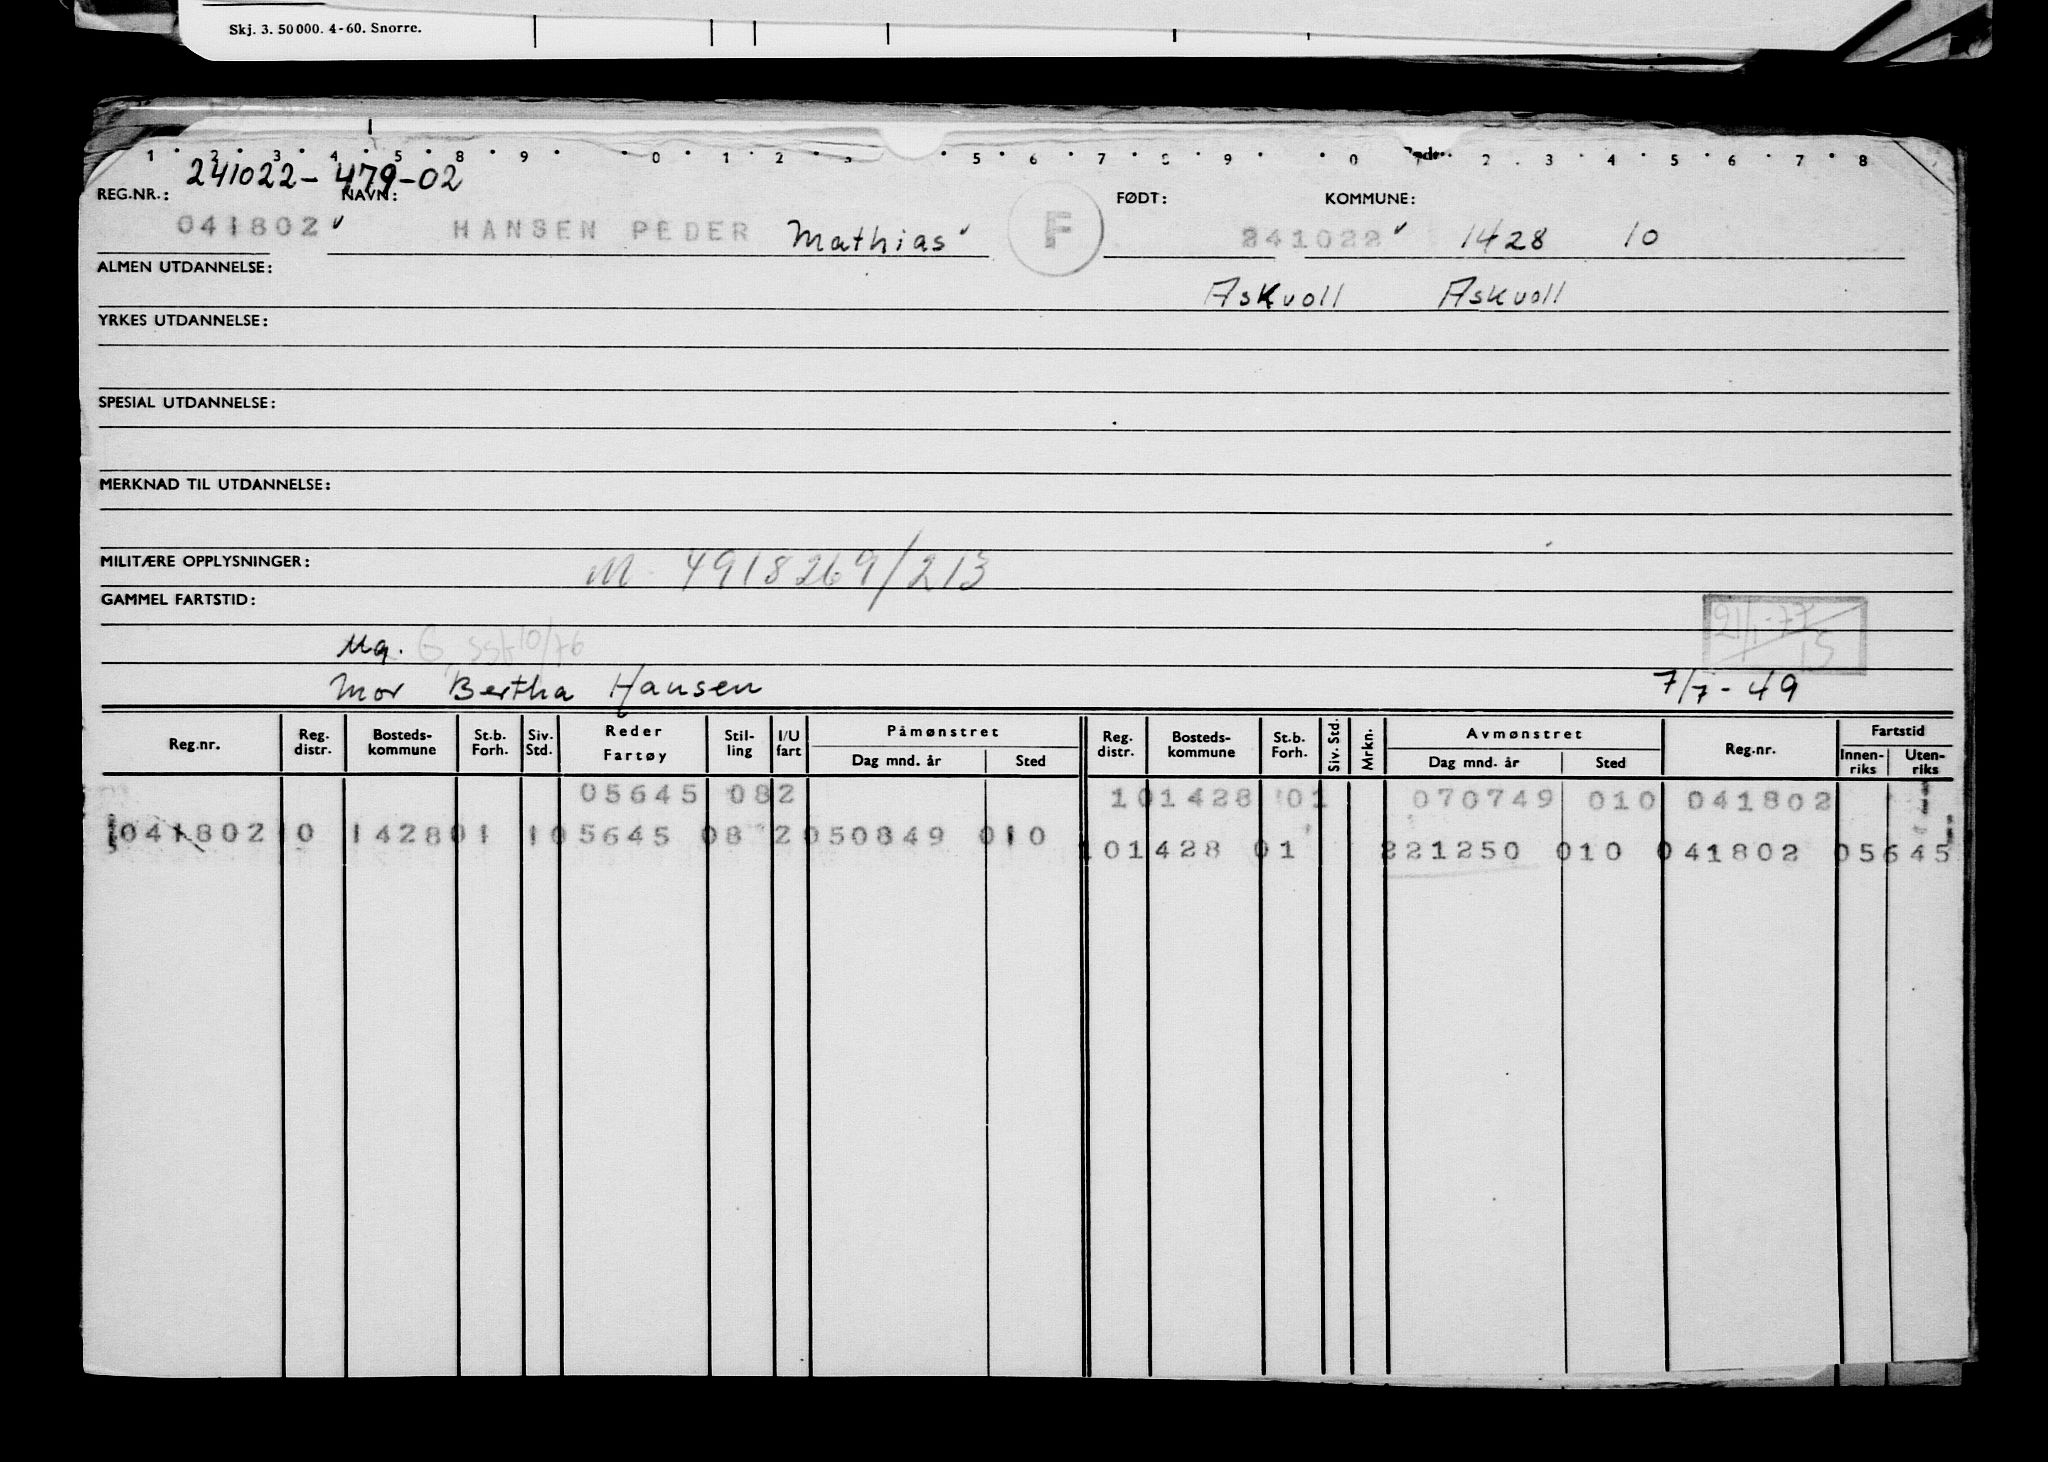 Skj. 3. 50000. 4-60. Snorre.
1 2 3 4 5 8 9 0 1 2 3 5 6 7 8 9 0 2 3 4 5 6 7 8
241022-479-02
REG.NR.: NAVN: FØDT: KOMMUNE:
041802 HANSEN PEDER Mathias F 241022 1428 10
ALMEN UTDANNELSE:
Askvoll Askvoll
YRKES UTDANNELSE:
SPESIAL UTDANNELSE:
MERKNAD TIL UTDANNELSE:
MILITÆRE OPPLYSNINGER: M. 4918269/213
GAMMEL FARTSTID:
21/1-77
15
Ug. G, SSf 10/76
Mor Bertha Hansen 7/7-49
Reg.nr. Reg. distr. Bosteds-kommune St.b. Forh. Siv. Std. Reder Fartøy Stil-ling I/U fart Påmønstret Dag mnd. år Sted Reg. distr. Bosteds-kommune St.b. Forh. Siv. Std. Mrkn. Avmønstret Dag mnd. år Sted Reg.nr. Fartstid Innen-riks Uten-riks
05645 082 101428 01 070749 010 041802
041802 10 142801 105645 08 2050849 010
101428 01 221250 010 041802 05645